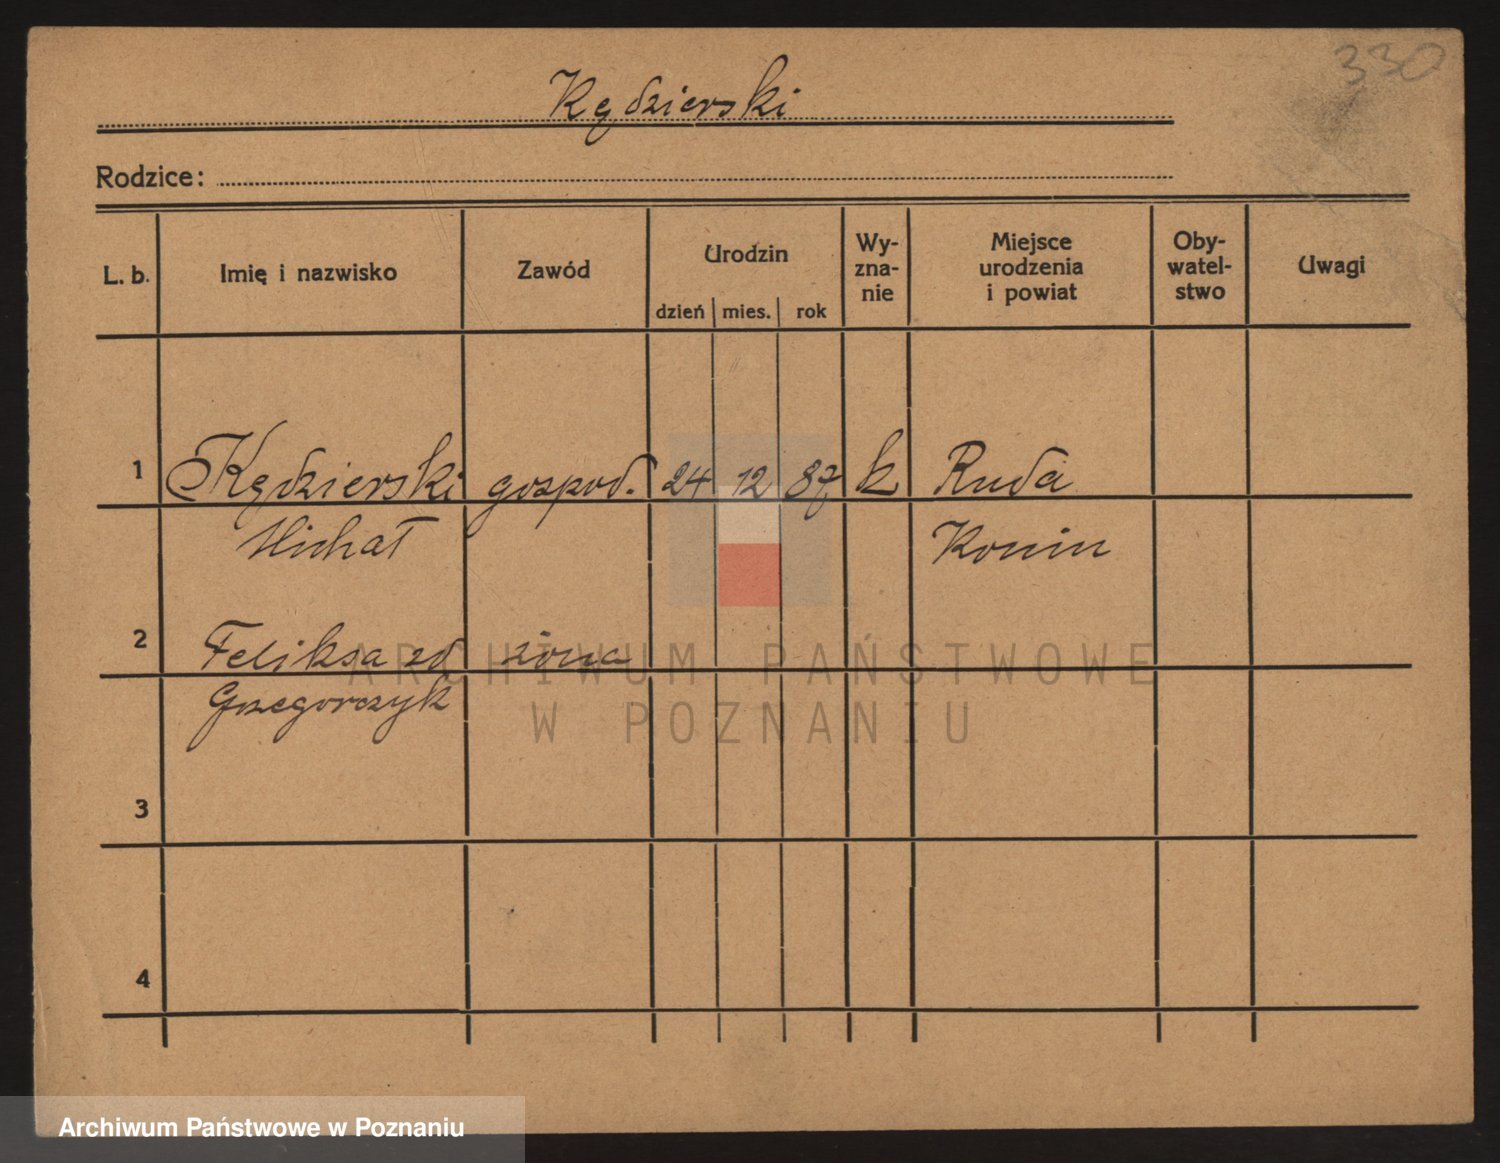 330
Kędzierski
Rodzice:
L. b. Imię i nazwisko Zawód Urodzin dzień mies. rok Wy-zna-nie Miejsce urodzenia i powiat Oby-watel-stwo Uwagi
1 Kędzierski gospod. 24 12 87 k Ruda
Michał Konin
2 Feliksa zd żona
Grzegorczyk
ARCHIWUM PAŃSTWOWE
W POZNANIU
3
4
Archiwum Państwowe w Poznaniu